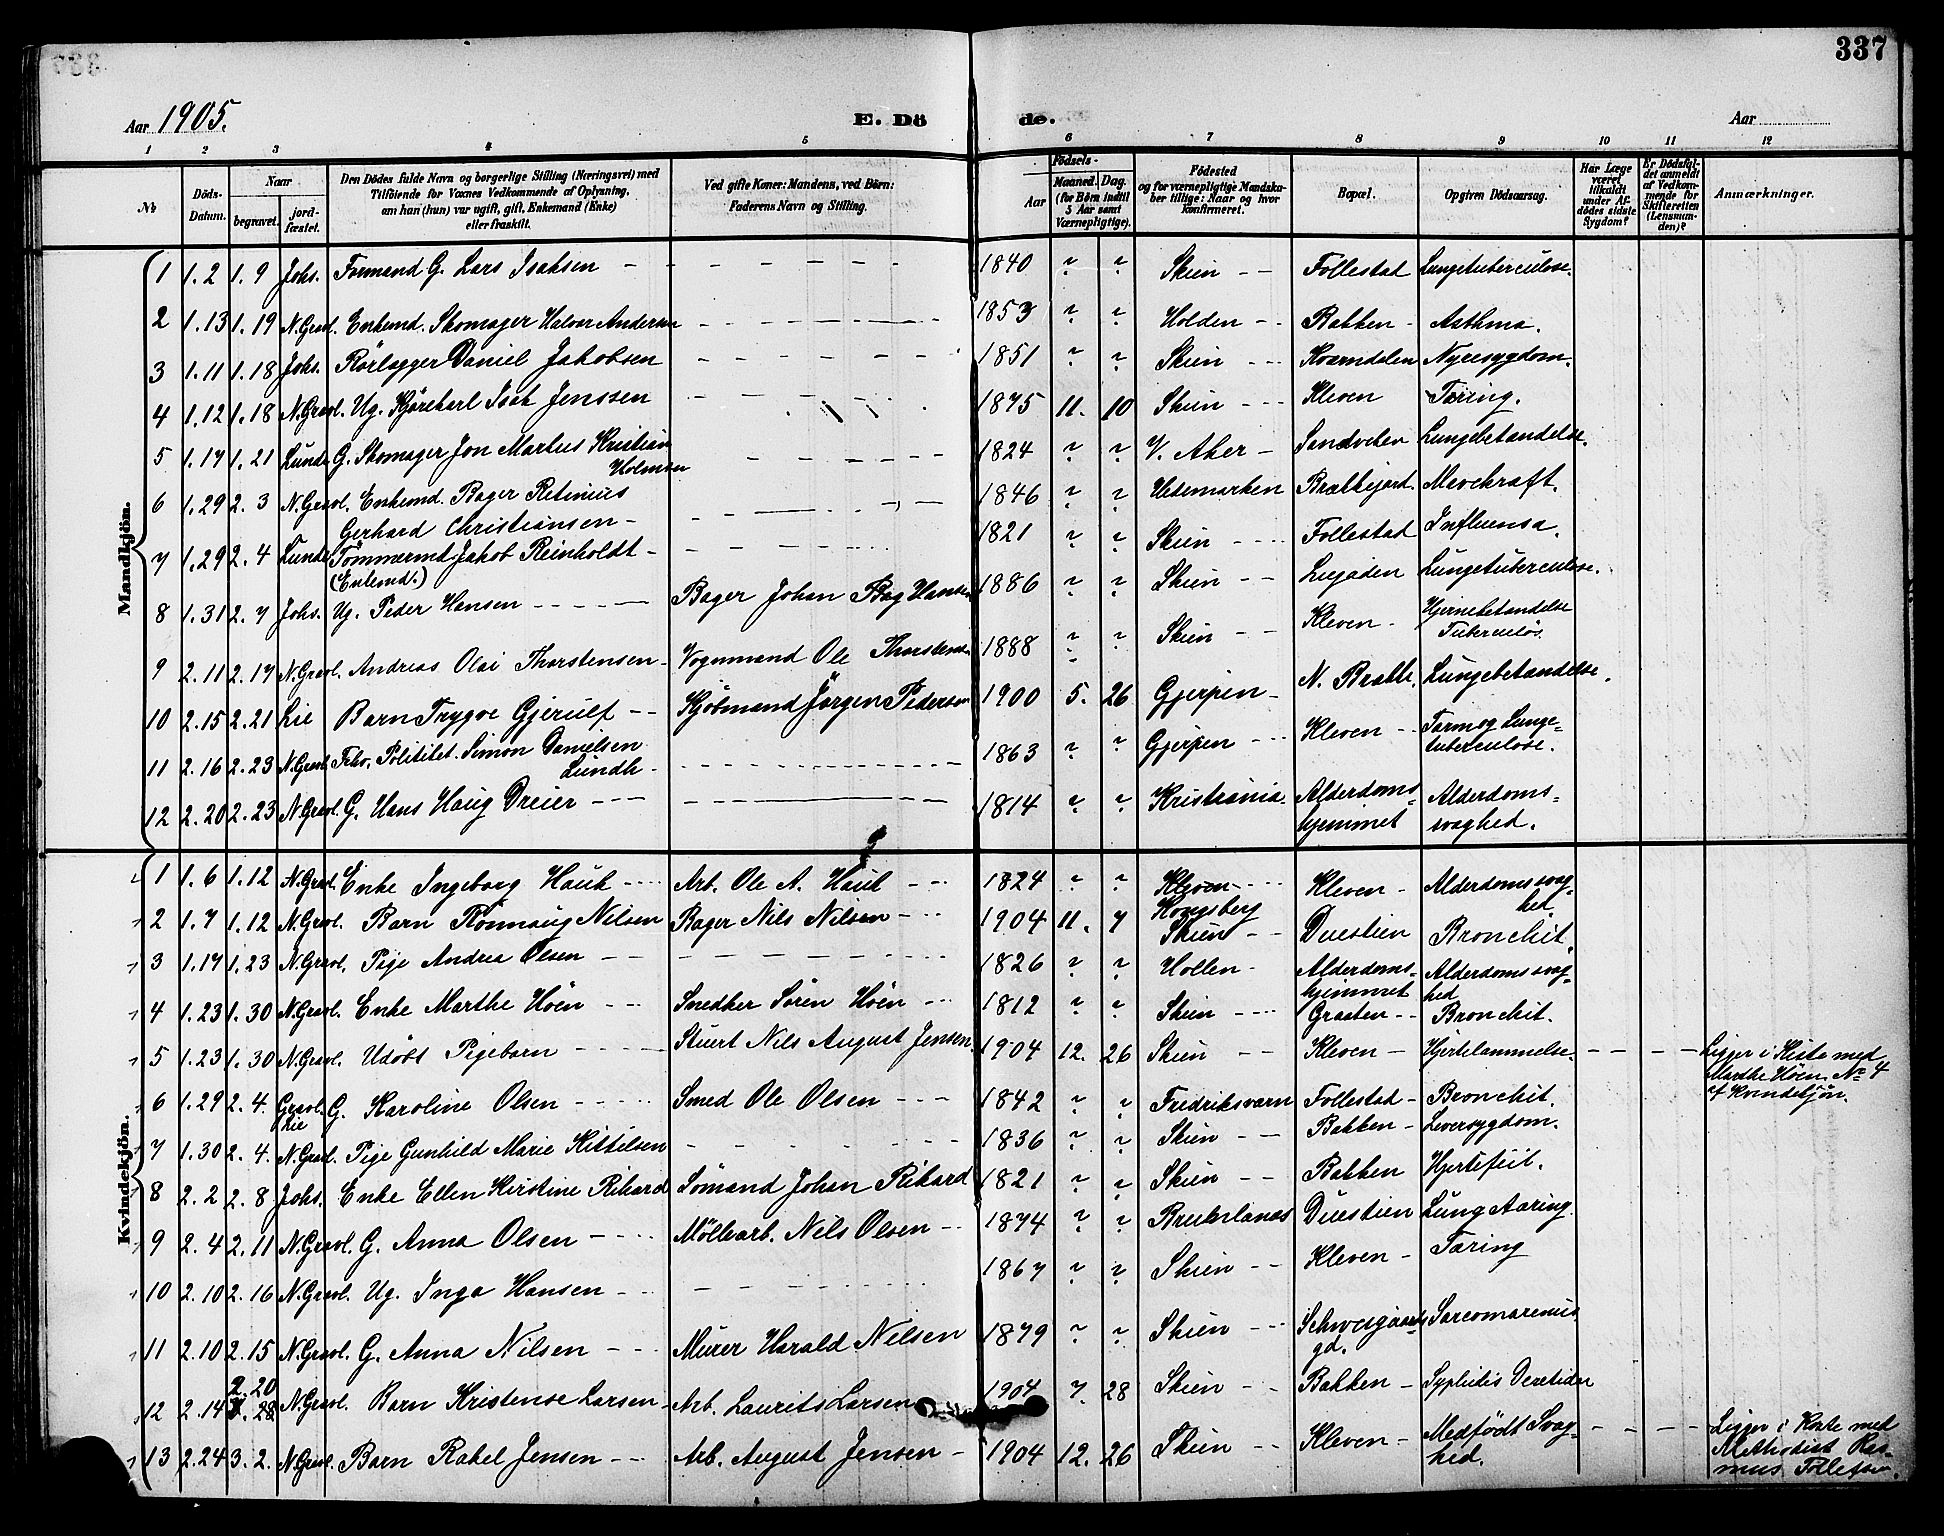 337
Aar 1905.
E. Dö de.
Aar
1 2 3 4 5 6 7 8 9 10 11 12
№
Döds-Datum.
Naar begravet. jord-fæstet.
Den Dödes fulde Navn og borgerlige Stilling (Næringsvei) med Tilföiende for Voxnes Vedkommende af Oplysning, om han (hun) var ugift, gift, Enkemand (Enke) eller fraskilt.
Ved gifte Koner: Mandens, ved Börn: Faderens Navn og Stilling.
Födsels- Aar Maaned. Dag. (for Börn indtil 5 Aar samt Værnepligtige).
Födested og for værnepligtige Mandskaber tillige: Naar og hvor konfirmeret.
Bopæl.
Opgiven Dödsaarsag.
Har Læge været tilkaldt under Afdödes sidste Sygdom?
Er Dödsfaldet anmeldt af Vedkommende for Skifteretten (Lensmanden)?
Anmærkninger.
Mandkjön.
1 1.2 1.9 Johs. Formand G. Lars Isaksen 1840 ? ? Skien Follestad Lungetuberculose.
2 1.13 1.19 N. Gravl. Enkemd. Skomager Halvor Andersen 1853 ? ? Holden Bakken Asthma.
3 1.11 1.18 Johs. Rörlægger Daniel Jakobsen 1851 ? ? Skien Kværndalen Nyresygdom.
4 1.12 1.18 N. Gravl. Ug. Kjörekarl Isak Jenssen 1875 11. 10 Skien Kleven Tæring.
5 1.17 1.21 Lunde G. Skomager Jon Martius Kristian Holmen 1824 ? ? V. Aker Lungebetændelse.
6 1.29 2.3 N. Gravl. Enkemd. Bager Retinius Gerhard Christiansen 1846 ? ? Hedemarken Brækkejord.
7 1.29 2.4 Lunde Tömmermd. Jakob Reinholdt (Enkemd.) 1821 ? ? Skien Follestad Influensa.
8 1.31 2.7 Johs. Ug. Peder Hansen Bager Johan Hansen 1886 ? ? Skien Lungetuberculose.
9 2.11 2.17 N. Gravl. Andreas Olai Thorstensen Vognmand Ole Thorstens. 1888 ? ? Skien Kleven Hjernebetændelse Tuberculös
10 2.15 2.21 Lie Barn Trygve Gjerulf Kjöbmand Jörgen Pedersen 1900 5. 26 Gjerpen N. Brække. Lungebetændelse.
11 2.16 2.23 N. Gravl. Fhv. Politibt. Simon Danielsen Lundh 1863 ? ? Gjerpen Kleven Tarm og Lunge-tuberculose.
12 2.20 2.23 N. Gravl. G. Hans Haug Dreier 1814 ? ? Kristiania Alderdoms-hjemmet Alderdoms-svaghed.
Kvindekjön.
1 1.6 1.12 N. Gravl. Enke Ingeborg Hauk Arb. Ole A. Hauk 1824 ? ? Kleven Kongsberg Kleven Alderdomssvag-hed
2 1.7 1.12 N. Gravl. Barn Rönnaug Nilsen Bager Nils Nilsen 1904 11. 7 Skien Duestien Bronchit.
3 1.17 1.23 N. Gravl. Pige Andrea Olsen 1826 ? ? Hollen Alderdoms-hjemmet Alderdomssvag-hed
4 1.23 1.30 N. Gravl. Enke Marthe Höen Snedker Sören Höen 1812 ? ? Skien Graaten Bronchit.
5 1.23 1.30 N. Gravl. Udöbt Pigebarn Stuert Nils August Jensen 1904 12. 26 Skien Kleven Hjertelammelse. Ligger i Kiste med Marthe Höen No 4 af Kvindekjön.
6 1.29 2.4. Gravl. Lie G. Karoline Olsen Smed Ole Olsen 1842 ? ? Fredriksværn Follestad Bronchit.
7 1.30 2.4. N. Gravl. Pige Gunhild Marie Kittilsen 1836 ? ? Skien Bakken Leversygdom.
8 2.2 2.8 Johs. Enke Ellen Kirstine Rikard Sömand Johan Rikard 1821 ? ? Skien Bakken Hjertefeil.
9 2.4 2.11 N. Gravl. G. Anna Olsen Möllearb. Nils Olsen 1874 ? ? Brunlanæs Duestien Lungtæring.
10 2.10 2.16 N. Gravl. Ug. Inga Hansen 1867 ? ? Skien Kleven Tæring
11 2.10 2.15 N. Gravl. G. Anna Nilsen Murer Harald Nilsen 1879 ? ? Skien Schweigaards gd.
12 2.14 2.20 2.28 N. Gravl. Barn Kristense Larsen Arb. Laurits Larsen 1904 7. 28 Skien Bakken Syphilis
13 2.24 3.2. N. Gravl. Barn Rakel Jensen Arb. August Jensen 1904 12. 26 Skien Kleven Medfödt Svag-hed. Ligger i Kiste med Methodist Ras-mus